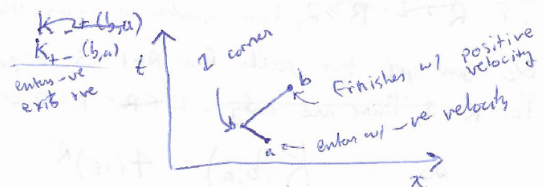 K-+(b,a)
K+-(b,a)
enters -ve
exits +ve
t
1 corner
b
Finishes w/ positive
velocity
a
enters w/ -ve velocity
x